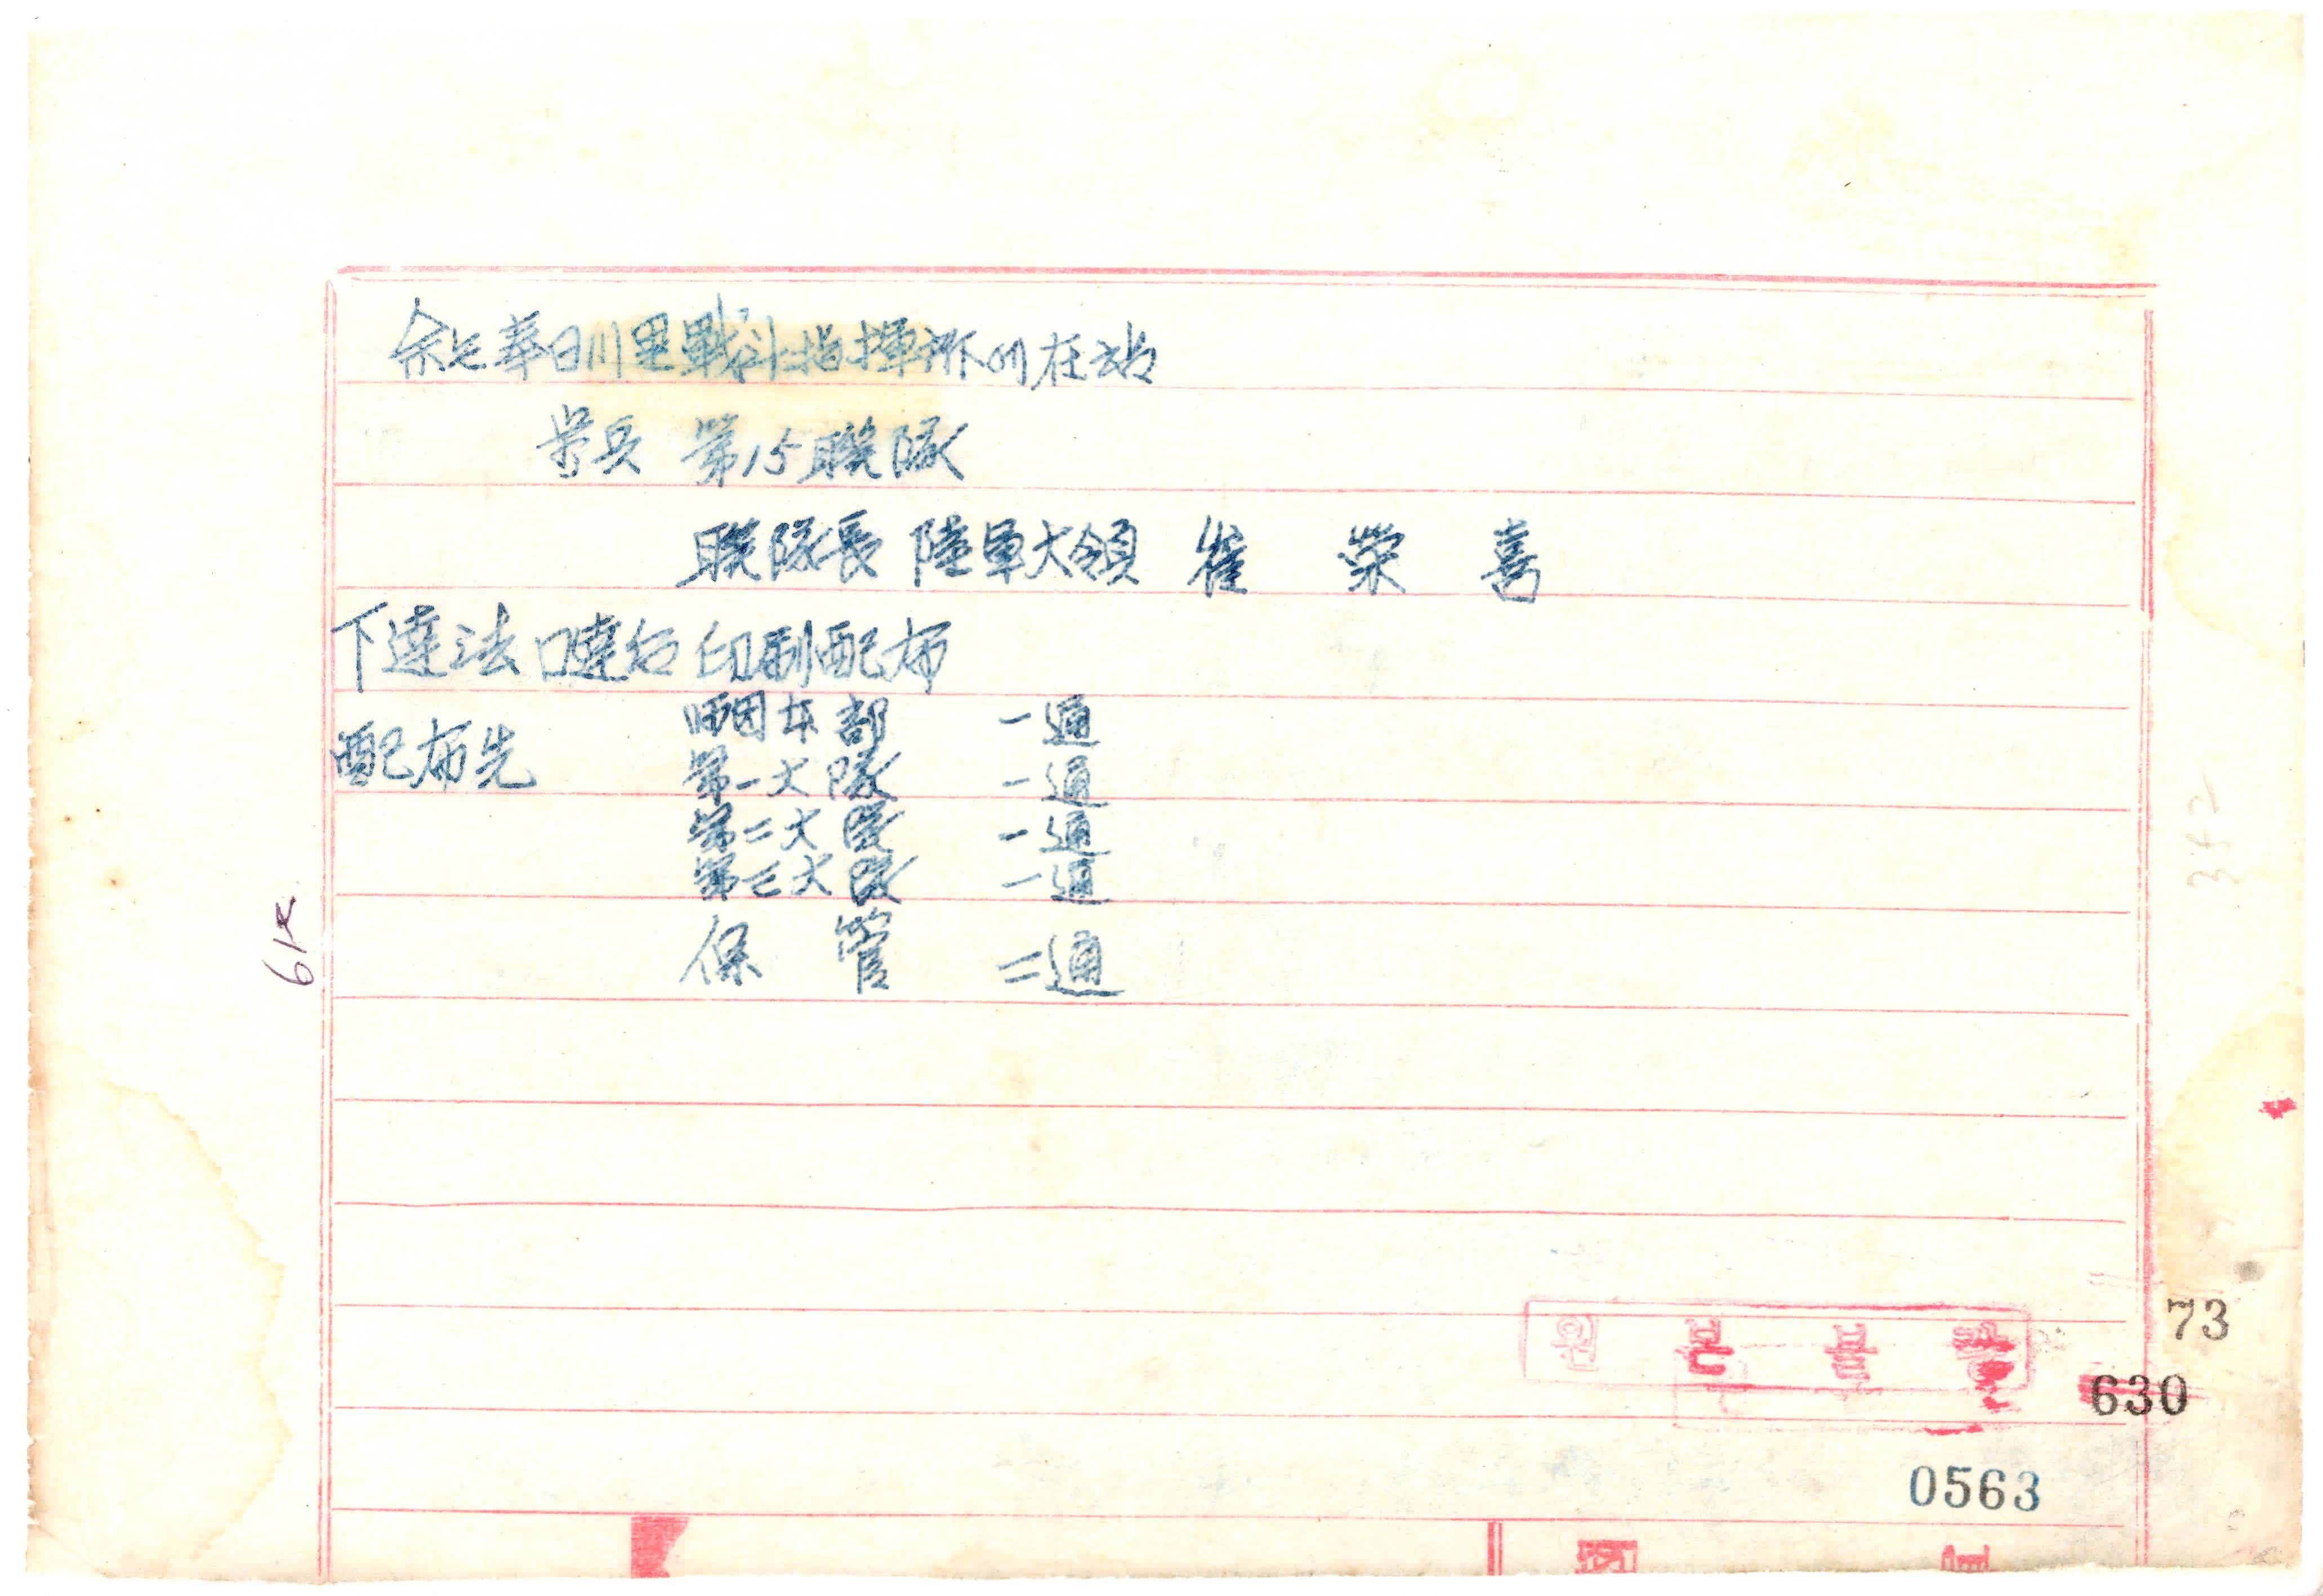 余는華日川里戰斗指揮所에在함
步兵 第15聯隊
聯隊長 陸軍大領 崔 榮 喜
下達法 口達后 印刷配布
配布先
師團本部 一通
第一大隊 一通
第二大隊 一通
第三大隊 一通
保 管 二通
342
원본불
73
630
0563